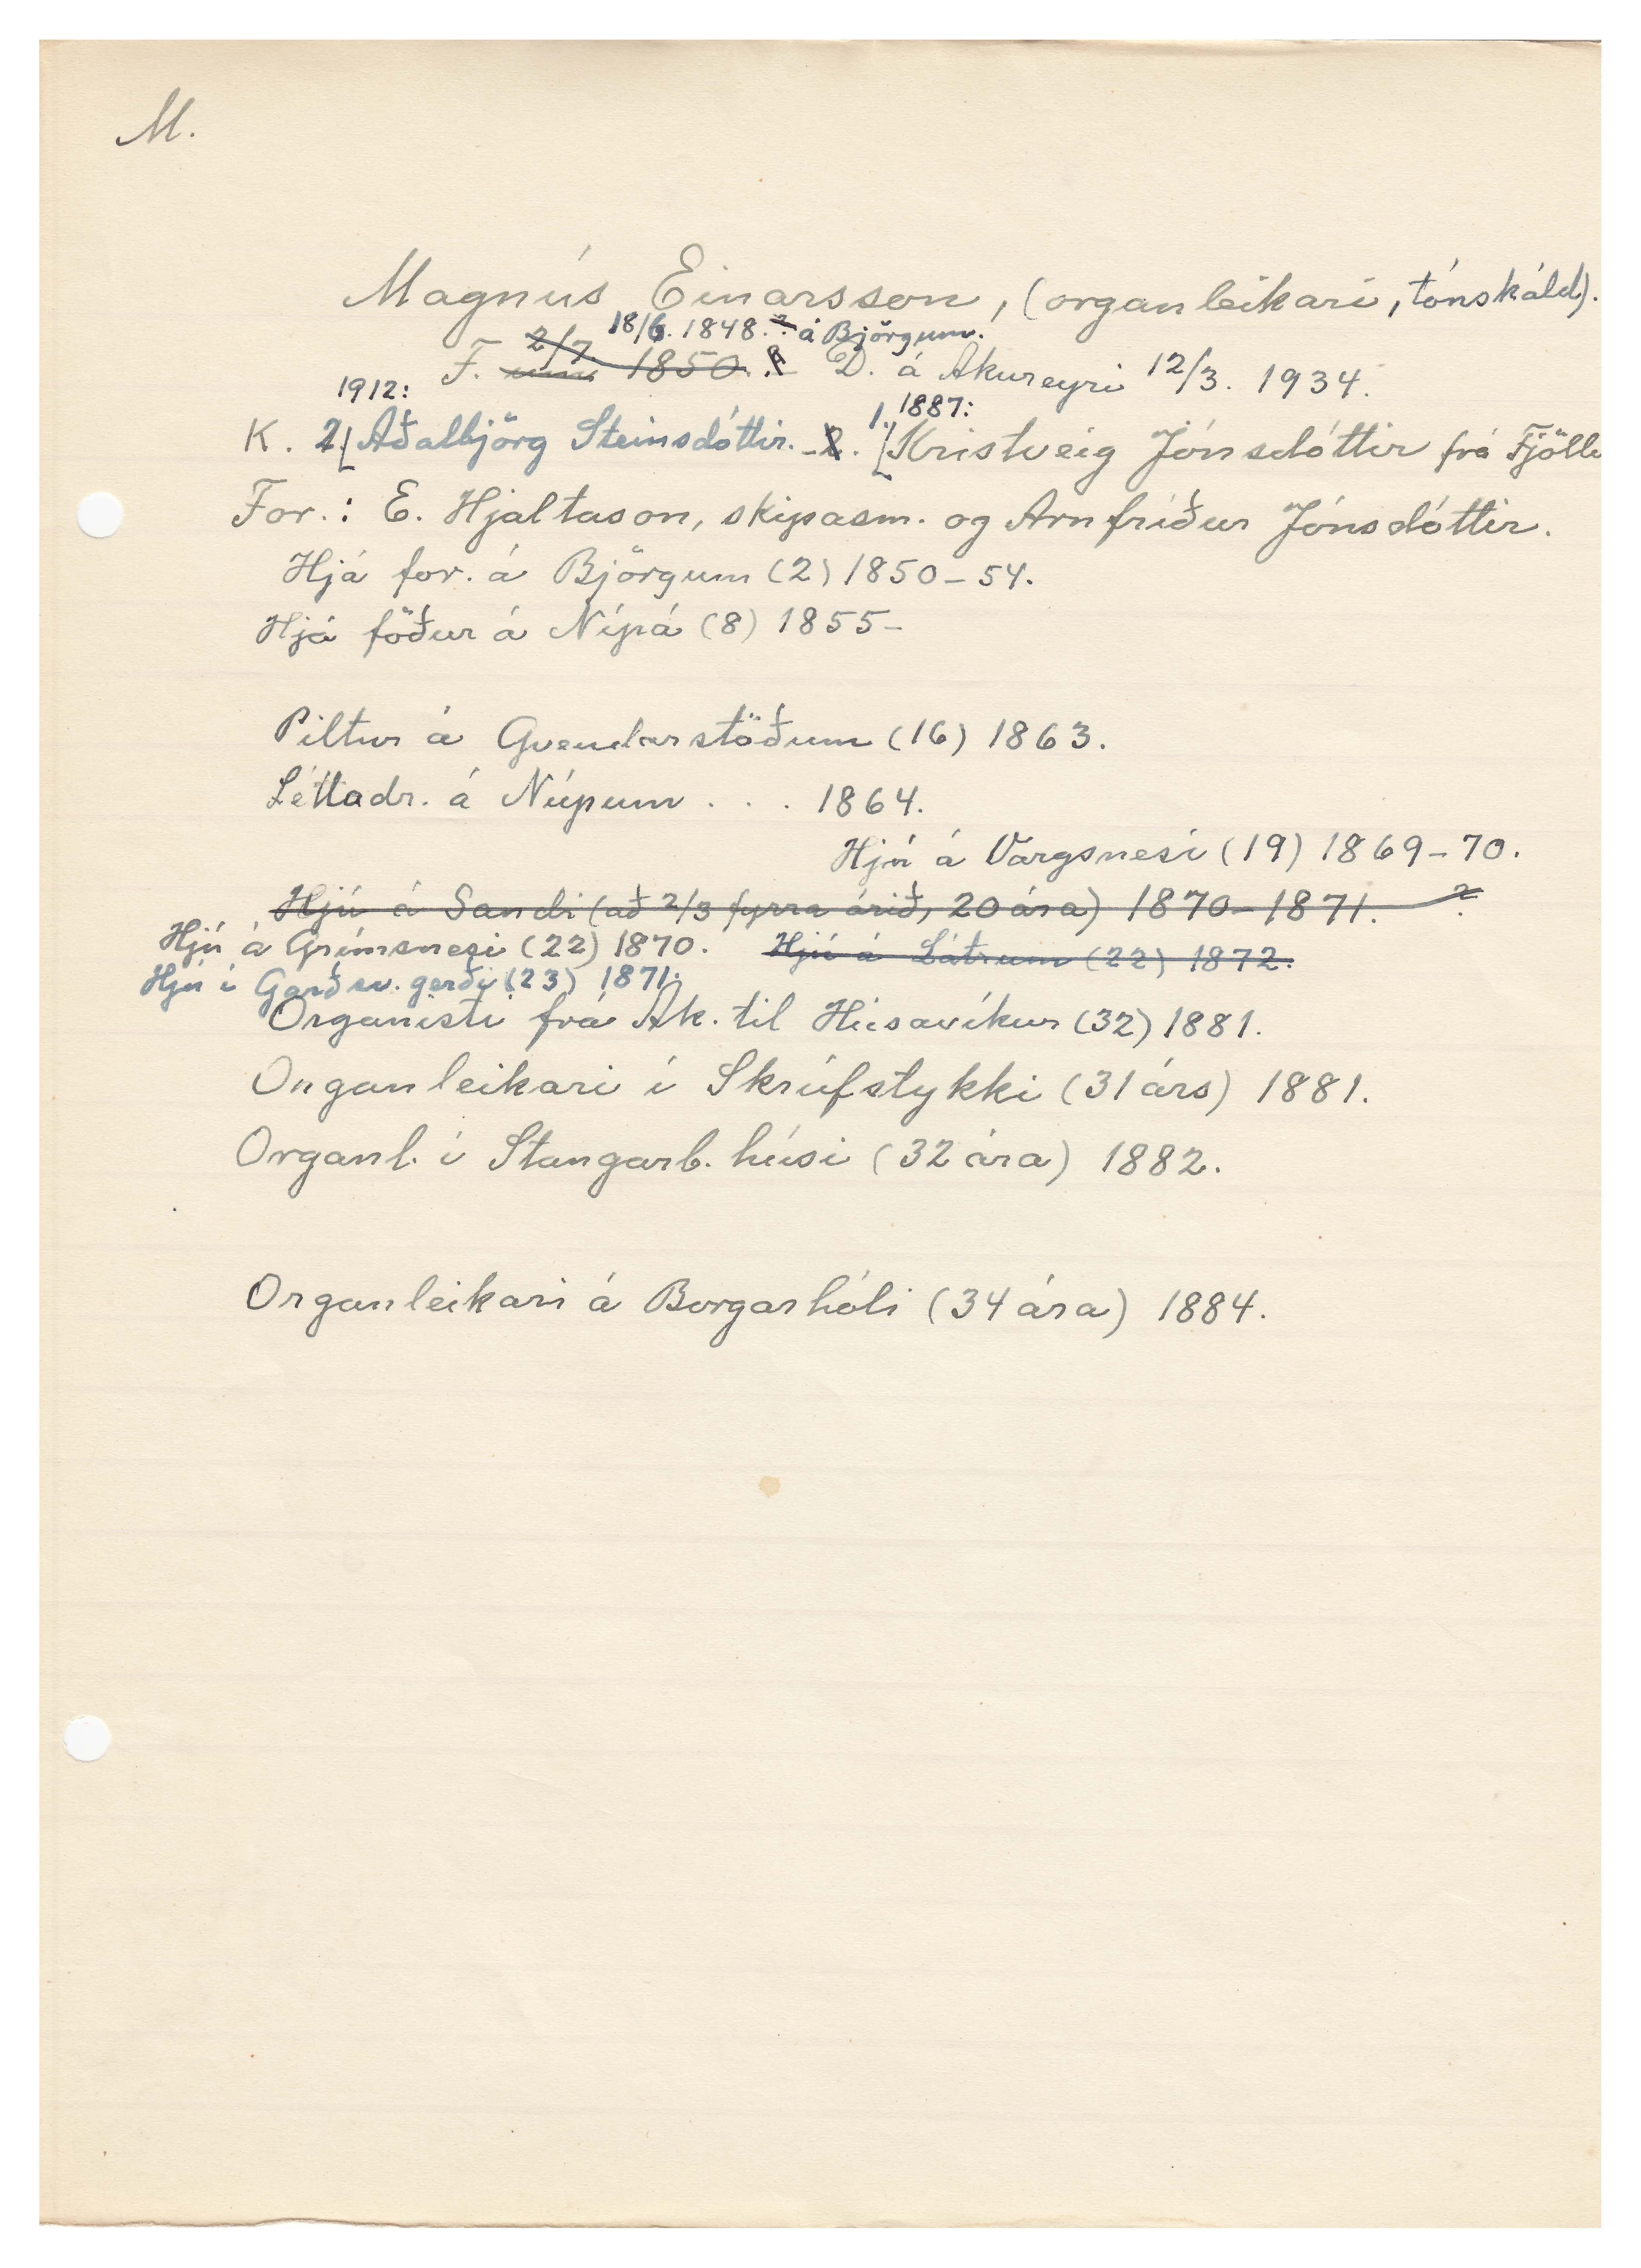 M.
Magnús Einarsson, (organleikari, tónskáld).
18/6. 1848. ? á Björgum.
F. 2/7 um 1850. ? D. á Akureyri 12/3. 1934.
1912: 1887:
K. 2.[Aðalbjörg Steinsdóttir. - 2. 1.[Kristveig Jónsdóttir frá Fjöllu
For.: E. Hjaltason, skipasm. og Arnfríður Jónsdóttir.
Hjá for. á Björgum (2) 1850-54.
Hjá föður á Nípá (8) 1855-
Piltur á Gvendarstöðum (16) 1863.
Léttadr. á Núpum . . . 1864.
Hjú á Vargsnesi (19) 1869-70.
Hjú á Sandi (að 2/3 fyrra árið, 20 ára) 1870-1871. ?
Hjú á Grímsnesi (22) 1870. Hjú á Látrum (22) 1872.
Hjú í Garðsv. gerði (23) 1871.
Organisti frá Ak. til Húsavíkur (32) 1881.
Organleikari í Skrúfstykki (31 árs) 1881.
Organl. í Stangarb. húsi (32 ára) 1882.
Organleikari á Borgarhóli (34 ára) 1884.